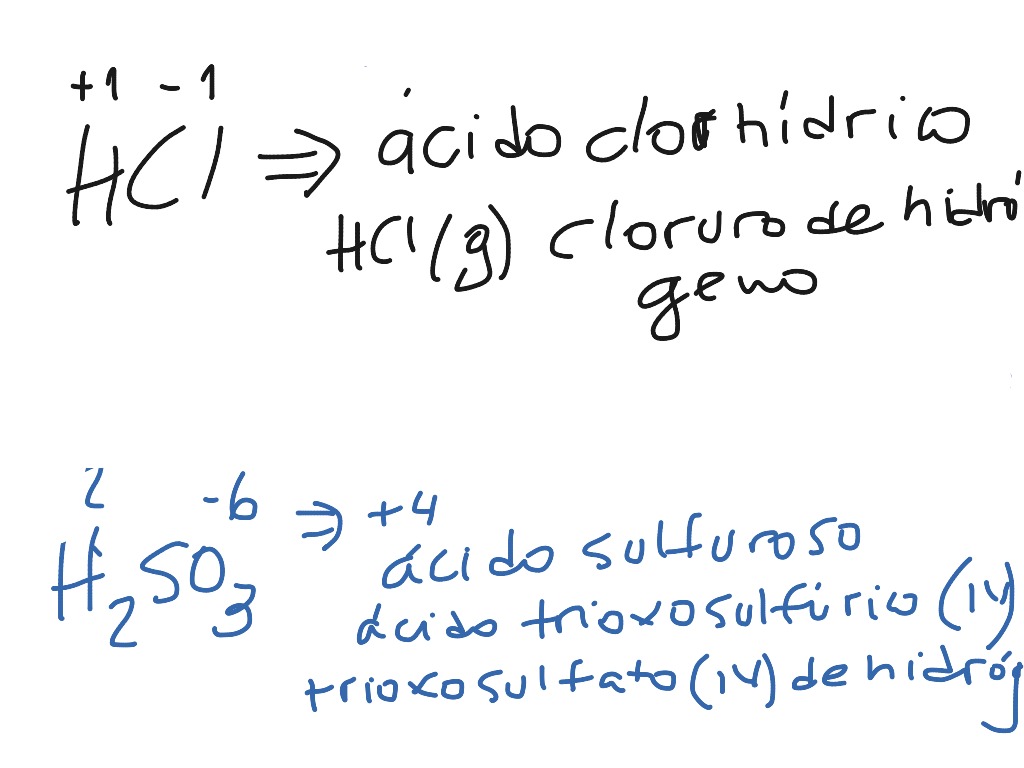 +1 -1
HCl ⇒ ácido clorhídrico
HCl(g) cloruro de hidró
geno
2 -6 ⇒ +4
H2SO3 ácido sulfuroso
ácido trioxosulfúrico (IV)
trioxosulfato (IV) de hidróg